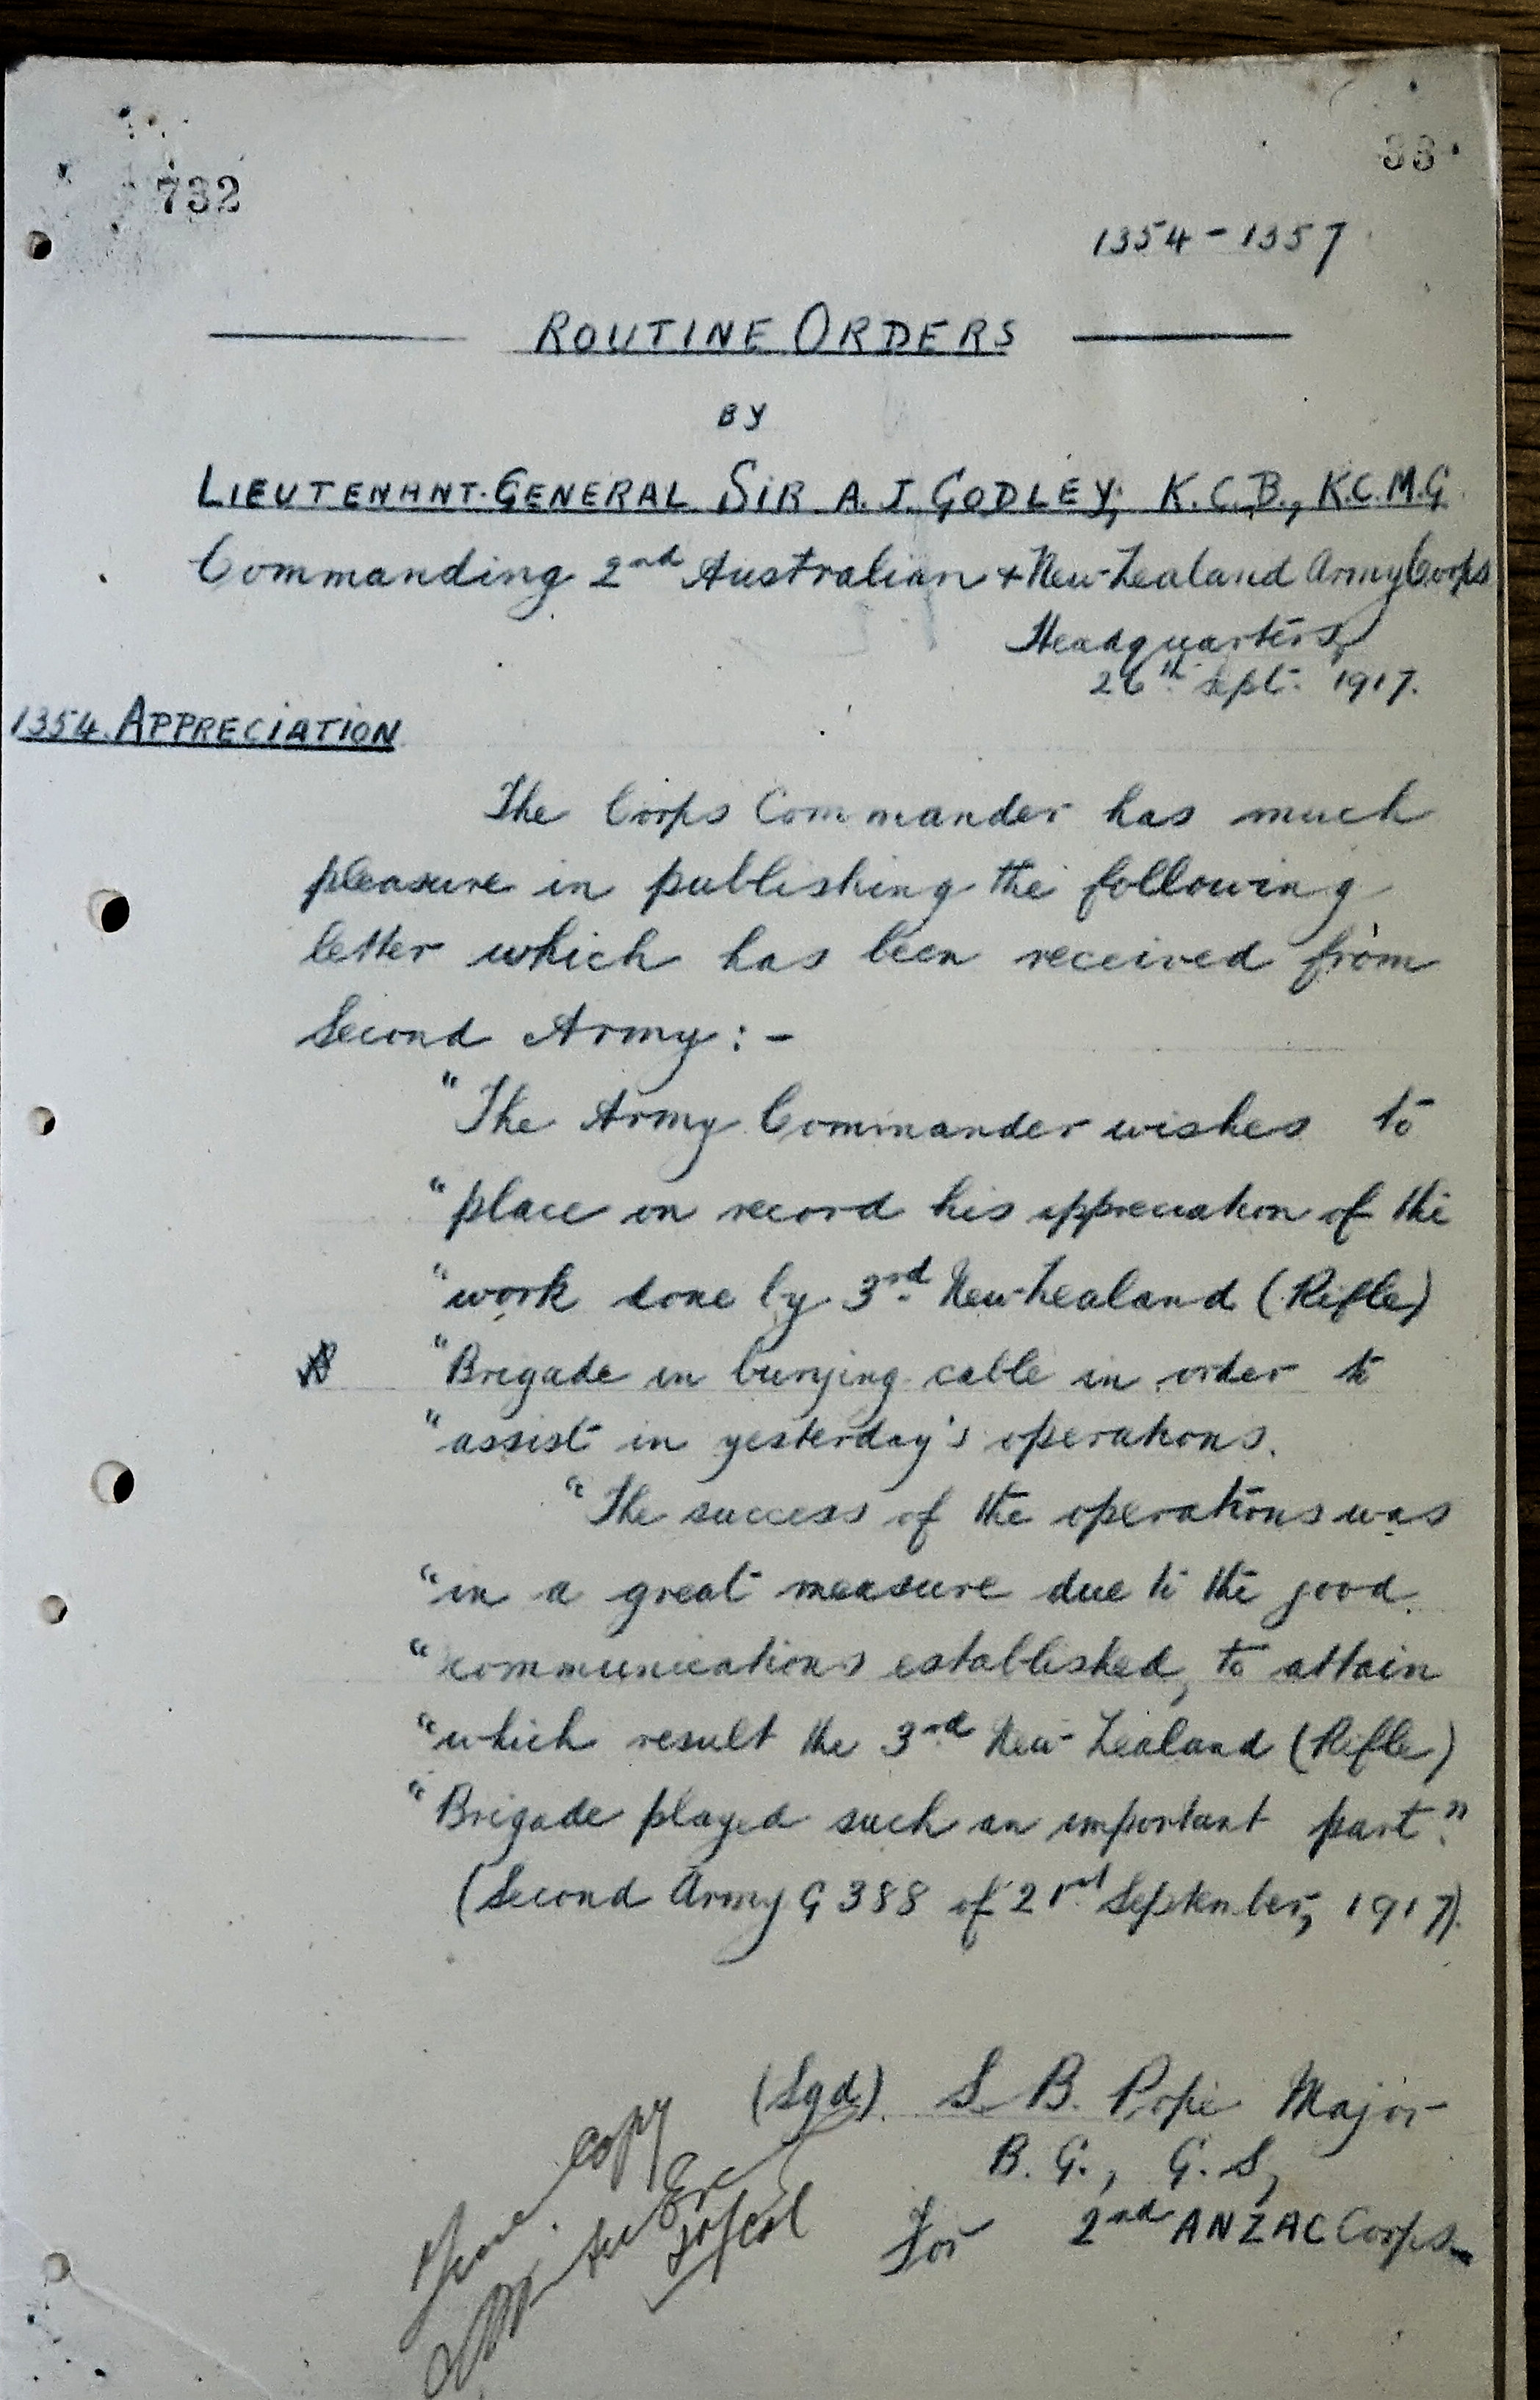 732
33
1354 - 1357
ROUTINE ORDERS
BY
LIEUTENANT-GENERAL SIR A.J. GODLEY, K.C.B., K.C.M.G
Commanding 2nd Australian + New-Zealand Army Corps
Headquarters,
26th Sept. 1917.
1354. APPRECIATION
The Corps Commander has much
pleasure in publishing the following
letter which has been received from
Second Army: -
"The Army Commander wishes to
"place on record his appreciation of the
"work done by 3rd New-Zealand (Rifle)
"Brigade in burying cable in order to
"assist in yesterday's operations.
"The success of the operations was
"in a great measure due to the good
"communications established, to attain
"which result the 3rd New-Zealand (Rifle)
"Brigade played such an important part."
(Second Army G 388 of 21st September, 1917).
(Sgd). S. B. Pope Major
B. G., G. S,
for 2nd ANZAC Corps
copy